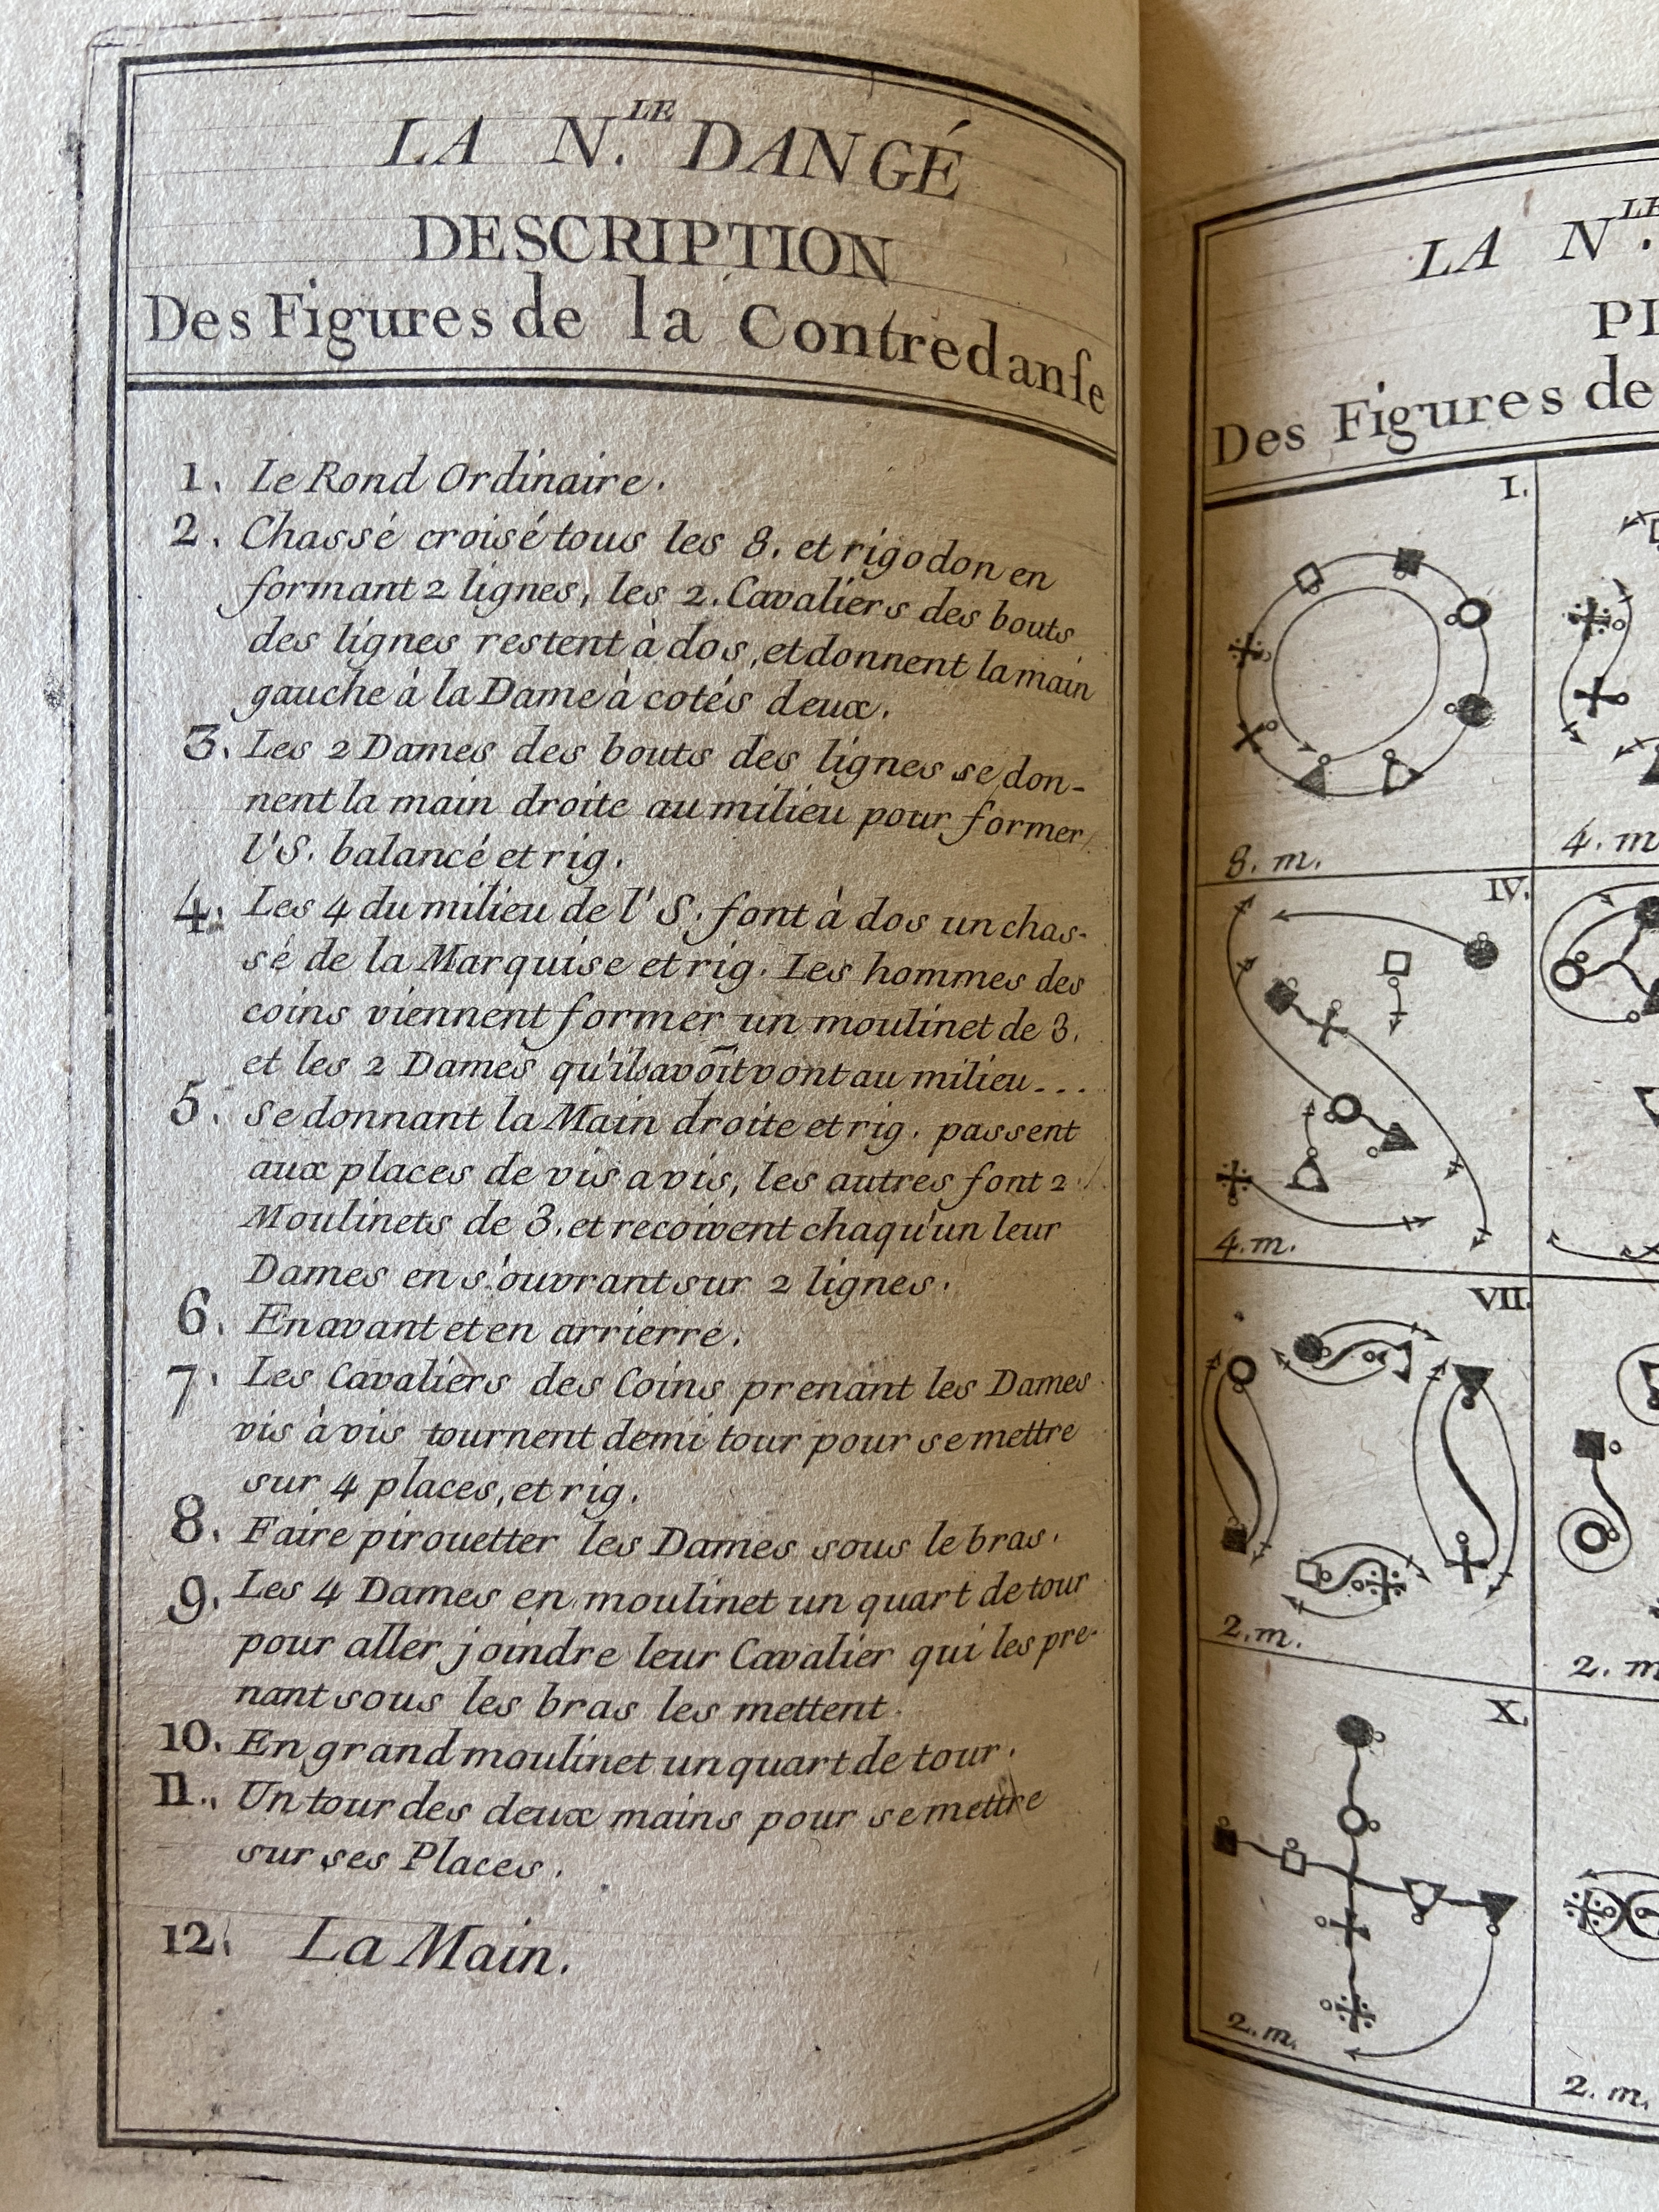 LA N.LE DANGÉ
DESCRIPTION
Des Figures de la Contredanſe
1. Le Rond Ordinaire.
2. Chassé croisé tous les 8. et rigodon en
formant 2 lignes, les 2. Cavaliers des bouts
des lignes restent à dos, et donnent la main
gauche à la Dame à cotés deux.
3. Les 2 Dames des bouts des lignes se don-
nent la main droite au milieu pour former
l'S. balancé et rig.
4. Les 4 du milieu de l'S. font à dos un chas-
sé de la Marquise et rig. Les hommes des
coins viennent former un moulinet de 3.
et les 2 Dames qu'ils avōit vont au milieu...
5. se donnant la Main droite et rig. passent
aux places de vis a vis, les autres font 2
Moulinets de 3. et recoivent chaqu'un leur
Dames en s'ouvrant sur 2 lignes.
6. En avant et en arrierre.
7. Les Cavaliers des Coins prenant les Dames
vis à vis tournent demi tour pour se mettre
sur 4 places, et rig.
8. Faire pirouetter les Dames sous le bras.
9. Les 4 Dames en moulinet un quart de tour
pour aller joindre leur Cavalier qui les pre-
nant sous les bras les mettent.
10. En grand moulinet un quart de tour.
11. Un tour des deux mains pour se mettre
sur ses Places.
12. La Main.
LA N.LE
PL
Des Figures de
I.
8. m.
4. m
IV.
4. m.
VII.
2. m.
2. m
X.
2. m.
2. m.